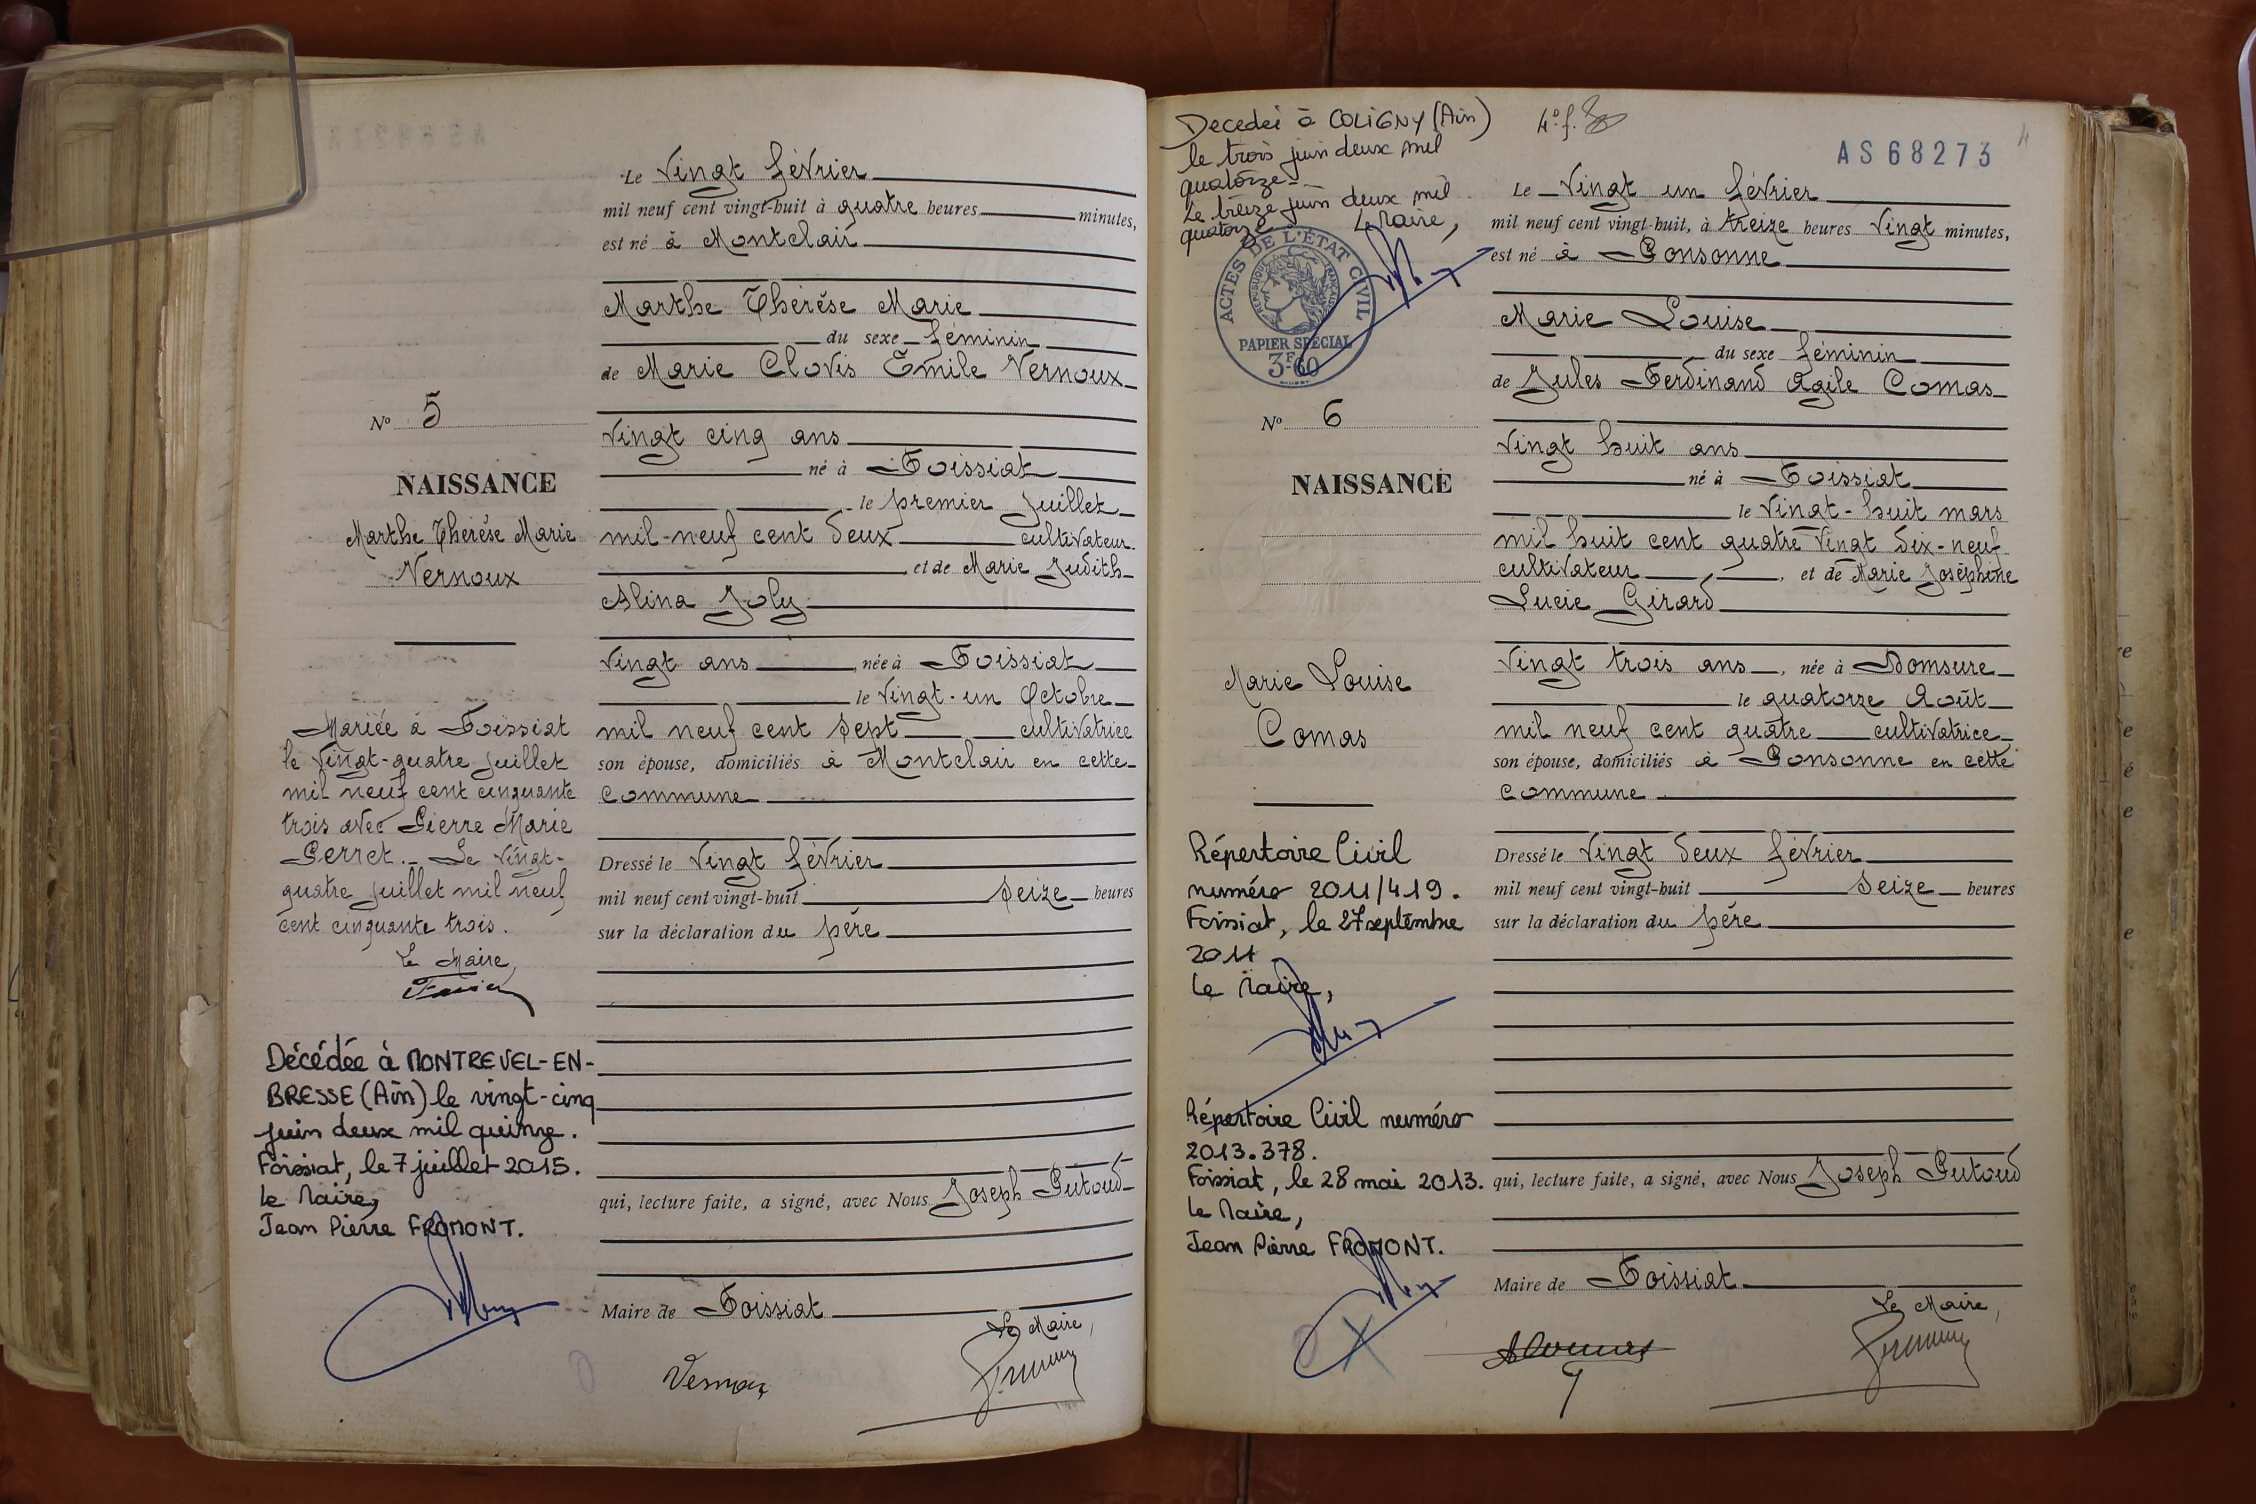 Le Vingt février
mil neuf cent vingt-huit à quatre heures minutes,
est né à Montclair
Marthe Thérèse Marie
du sexe féminin
de Marie Clovis Emile Vernoux
Vingt cinq ans
né à Foissiat
le premier Juillet
mil-neuf cent deux cultivateur
et de Marie Judith
Alina Joly
Vingt ans, née à Foissiat
le Vingt-un Octobre
mil neuf cent sept cultivatrice
son épouse, domiciliés à Montclair en cette
commune
Dressé le Vingt février
mil neuf cent vingt-huit seize heures
sur la déclaration du père
qui, lecture faite, a signé, avec Nous Joseph Putoud
Maire de Foissiat
Le Maire,
Nº 5
NAISSANCE
Marthe Thérèse Marie
Vernoux
Mariée à Foissiat
le Vingt-quatre Juillet
mil neuf cent cinquante
trois avec Pierre Marie
Perret.- Le Vingt-
quatre Juillet mil neuf
cent cinquante trois.
Le Maire,
Décédée à MONTREVEL-EN-
BRESSE (Ain) le vingt-cinq
juin deux mil quinze.
Foissiat, le 7 juillet 2015.
Le Maire,
Jean Pierre FROMONT.
Decedée à COLIGNY (Ain)
le trois juin deux mil
quatorze
Le treize juin deux mil
quatorze Le Maire,
4º f.
AS68273
4
ACTES DE L'ÉTAT CIVIL
RÉPUBLIQUE FRANÇAISE
PAPIER SPÉCIAL
3F60
Nº 6
NAISSANCE
Marie Louise
Comas
Répertoire Civil
numéro 2011/419.
Foissiat, le 27 septembre
2011
Le Maire,
Répertoire Civil numéro
2013.378.
Foissiat, le 28 mai 2013.
Le Maire,
Jean Pierre FROMONT.
Le Vingt un février
mil neuf cent vingt-huit, à treize heures Vingt minutes,
est né à Ponsonne
Marie Louise
du sexe féminin
de Jules Ferdinand Agile Comas
Vingt huit ans
né à Foissiat
le Vingt-huit mars
mil huit cent quatre Vingt dix-neuf
cultivateur, et de Marie Joséphine
Lucie Girard
Vingt trois ans, née à Domsure
le quatorze Août
mil neuf cent quatre cultivatrice
son épouse, domiciliés à Ponsonne en cette
commune
Dressé le Vingt deux février
mil neuf cent vingt-huit seize heures
sur la déclaration du père
qui, lecture faite, a signé, avec Nous Joseph Putoud
Maire de Foissiat
Le Maire,